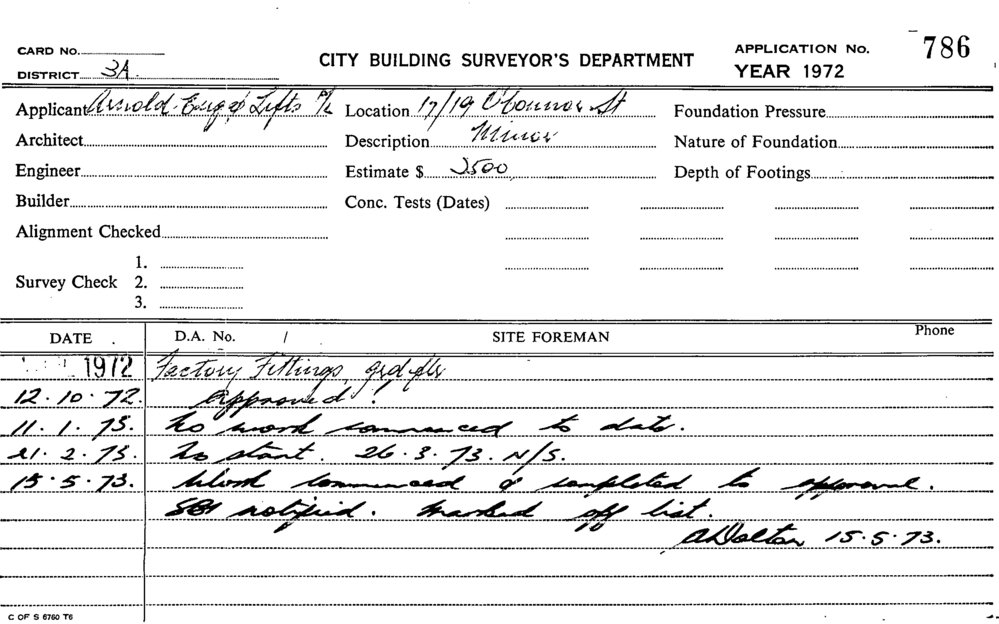 CARD No.
DISTRICT 3A
CITY BUILDING SURVEYOR'S DEPARTMENT
APPLICATION No. 786
YEAR 1972
Applicant Arnold Lifts P/L
Architect
Engineer
Builder
Alignment Checked
Survey Check
1.
2.
3.
Location 17/19 O'Connor St
Description Minor
Estimate $ 2500
Conc. Tests (Dates)
Foundation Pressure
Nature of Foundation
Depth of Footings
DATE D.A. No. / SITE FOREMAN Phone
1972 Factory Fittings
12.10.72. approved!
11.1.73. No work commenced to date.
21.2.73. No start. 26.3.73. N/S.
15.5.73. Work commenced & completed to approval.
notified. Marked off list.
A Dalton 15.5.73.
C OF S 6760 T6